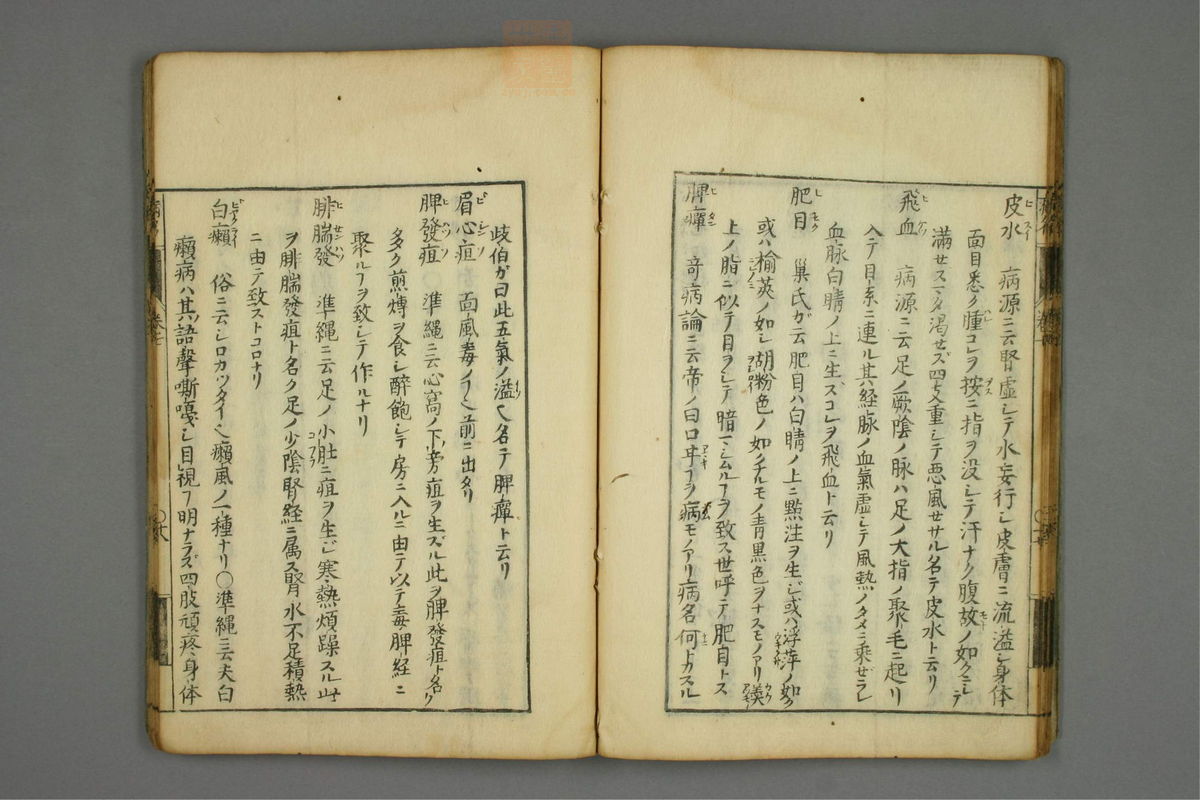 皮水 病源ニ云腎虚シテ水妄行シ皮膚ニ流溢シ身体
面目悉ク腫コレヲ按ニ指ヲ没シテ汗ナク腹故ノ如クニシテ
満セスマタ渇セズ四支重シテ悪風セサル名テ皮水ト云リ
飛血 病源ニ云足ノ厥陰ノ脉ハ足ノ大指ノ聚毛ニ起リ
入テ目系ニ連ル其経脉ノ血氣虚シテ風熱ノタメニ乗ぜラレ
血脉白睛ノ上ニ生ズコレヲ飛血ト云リ
肥目 巣氏ガ云肥目ハ白睛ノ上ニ點注ヲ生ジ或ハ浮萍ノ如ク
或ハ楡莢ノ如シ胡粉色ノ如クナルモノ青黒色ヲナスモノアリ羹
上ノ脂ニ似テ目ヲシテ暗マシムルヿヲ致ス世呼テ肥目トス
脾癉 竒病論ニ云帝ノ曰口ヰヿヲ病モノアリ病名何トカスル
歧伯ガ曰此五氣ノ溢也名テ脾癉ト云リ
眉心疽 面風毒ノヿ也前ニ出タリ
脾發疽 準縄ニ云心窩ノ下旁疽ヲ生ズル此ヲ脾發疽ト名ク
多ク煎煿ヲ食シ醉飽シテ房ニ入ルニ由テ以テ毒脾経ニ
聚ルヿヲ致シテ作ルナリ
腓腨發 準縄ニ云足ノ小肚ニ疽ヲ生ジ寒熱煩躁スル此
ヲ腓腨發疽ト名ク足ノ少陰腎経ニ属ス腎水不足積熱
ニ由テ致ストコロナリ
白癩 俗ニ云シロカツタイ也癩風ノ一種ナリ〇準縄ニ云夫白
癩病ハ其語聲嘶嗄シ目視ヿ明ナラズ四肢頑疼身体